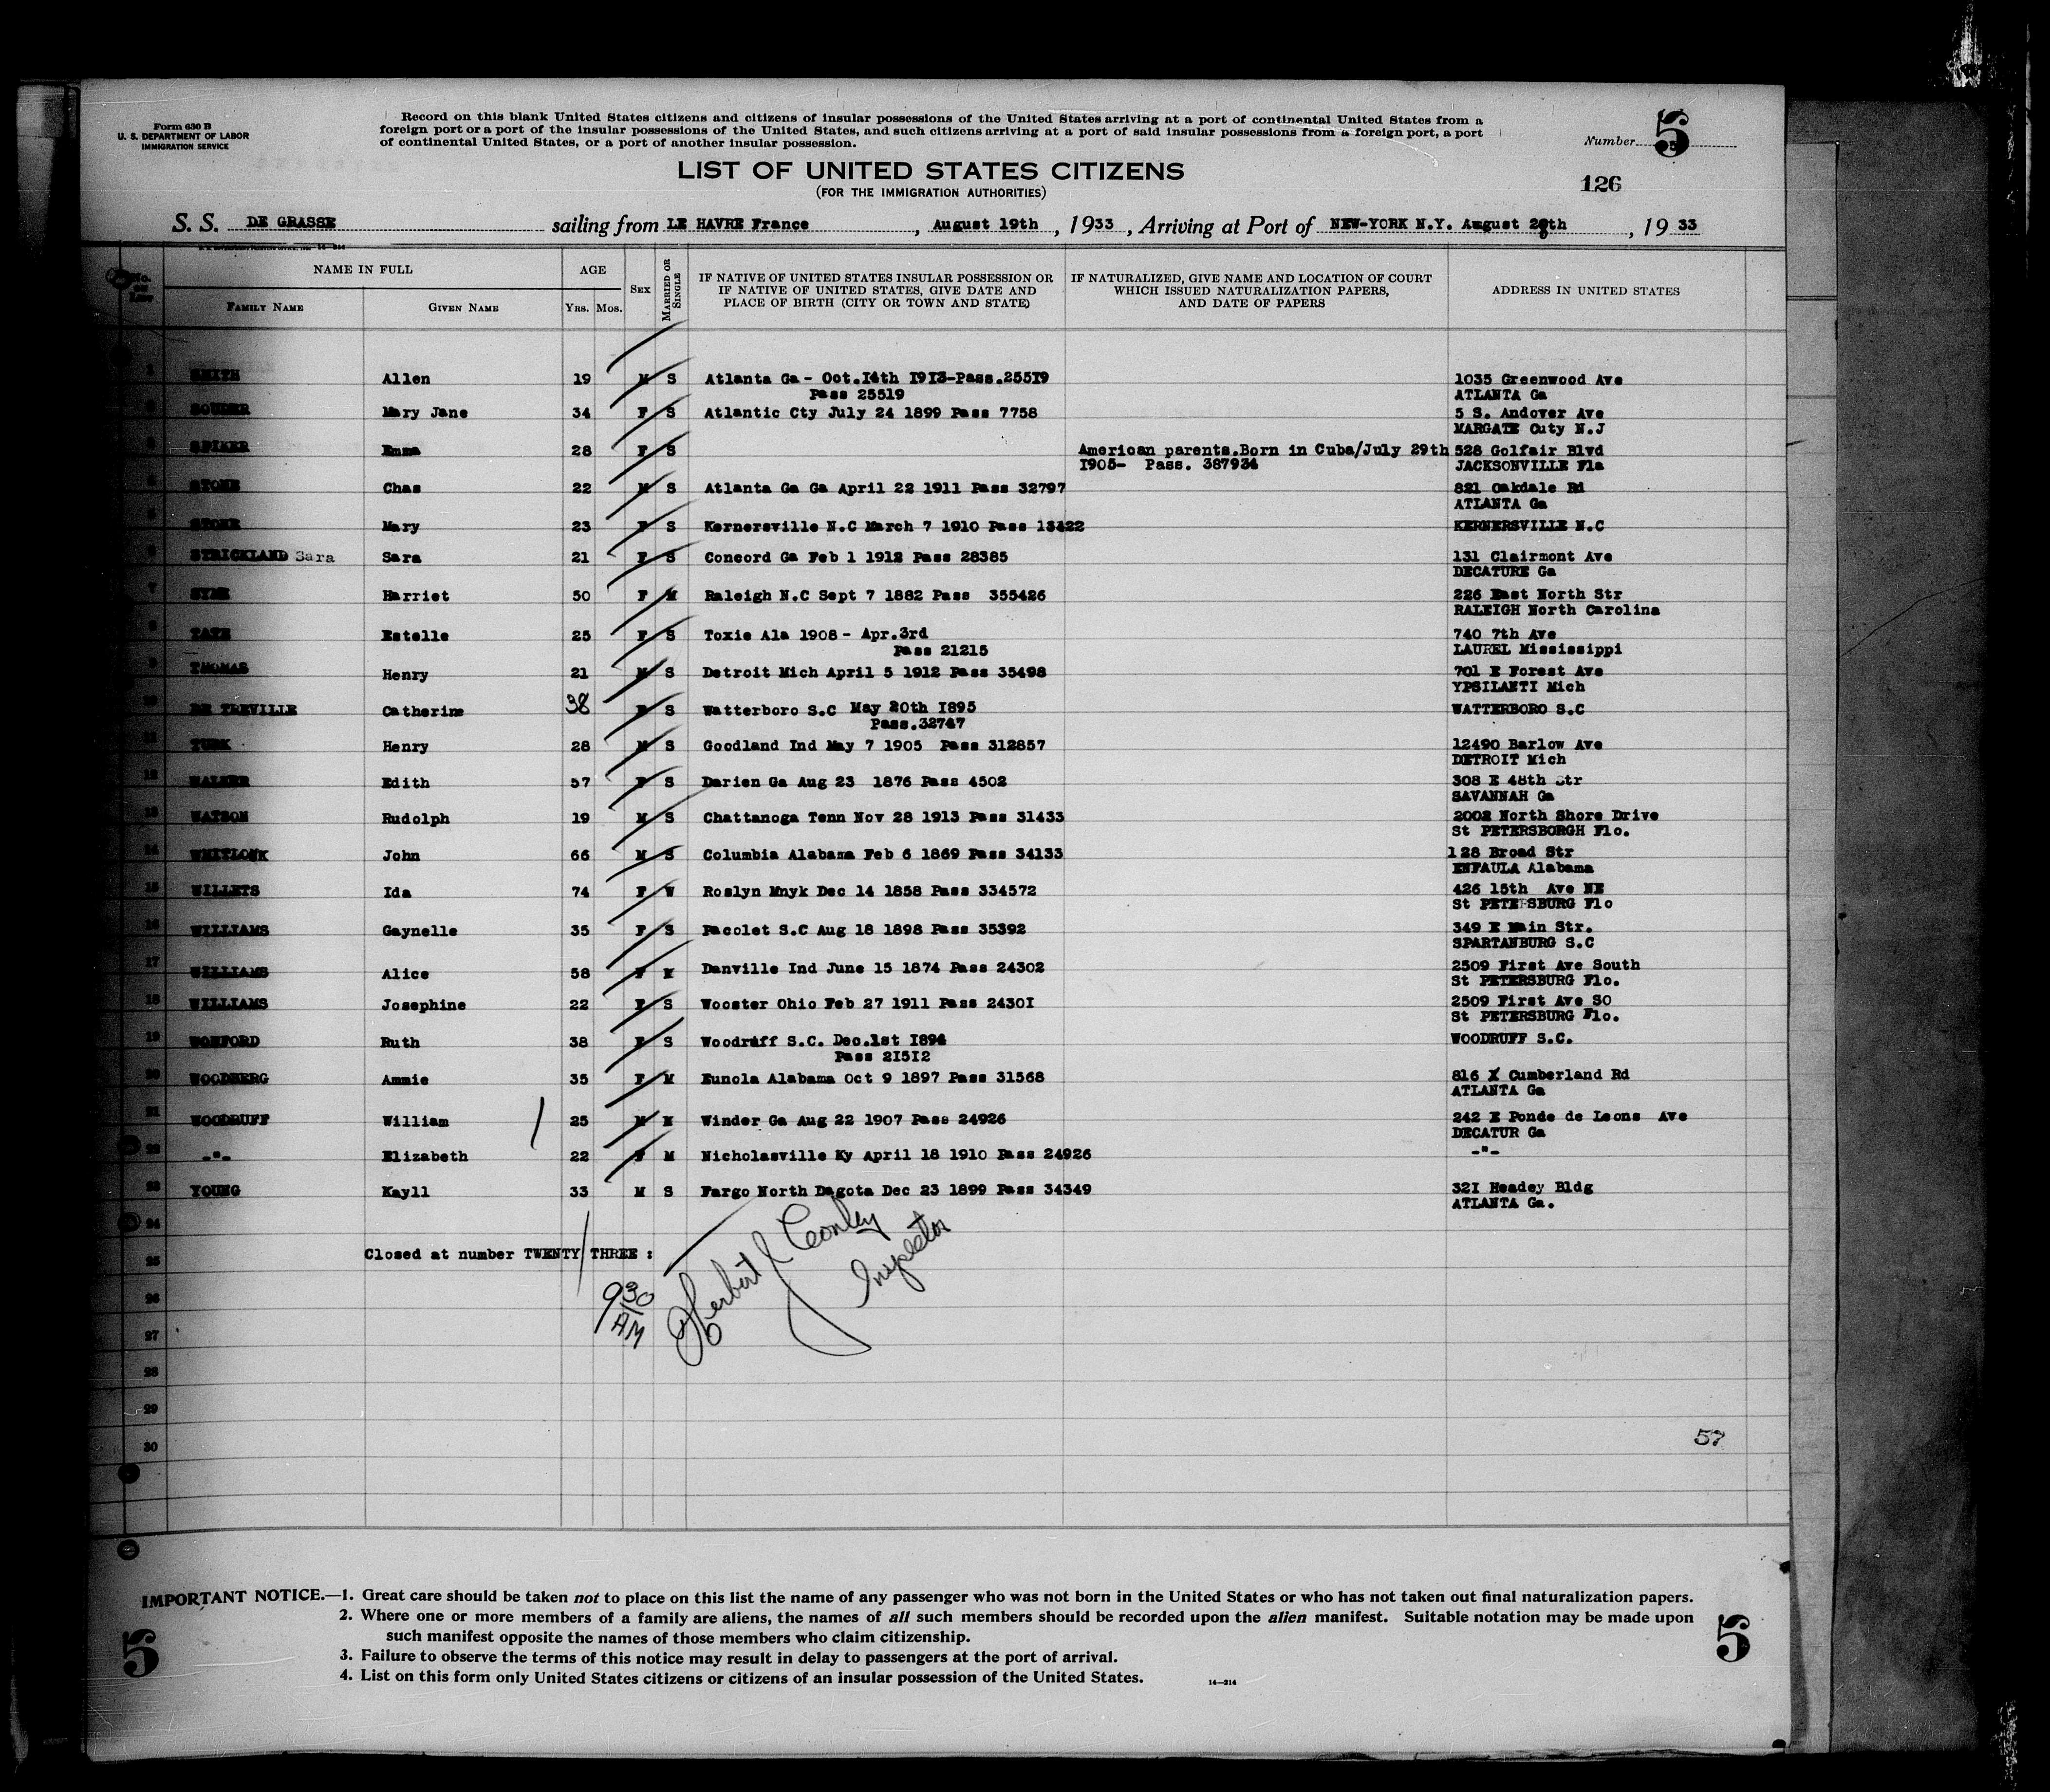 Form 630 B
U. S. DEPARTMENT OF LABOR
IMMIGRATION SERVICE
Record on this blank United States citizens and citizens of insular possessions of the United States arriving at a port of continental United States from a
foreign port or a port of the insular possessions of the United States, and such citizens arriving at a port of said insular possessions from a foreign port, a port
of continental United States, or a port of another insular possession.
Number 5
LIST OF UNITED STATES CITIZENS
(FOR THE IMMIGRATION AUTHORITIES)
126
S. S. DE GRASSE sailing from LE HAVRE France, August 19th, 1933, Arriving at Port of NEW-YORK N.Y. August 28th, 19 33
No. on List
NAME IN FULL
AGE
SEX
MARRIED OR SINGLE
IF NATIVE OF UNITED STATES INSULAR POSSESSION OR
IF NATIVE OF UNITED STATES, GIVE DATE AND
PLACE OF BIRTH (CITY OR TOWN AND STATE)
IF NATURALIZED, GIVE NAME AND LOCATION OF COURT
WHICH ISSUED NATURALIZATION PAPERS,
AND DATE OF PAPERS
ADDRESS IN UNITED STATES
FAMILY NAME GIVEN NAME YRS. MOS.
1 SMITH Allen 19 M S Atlanta Ga - Oct.14th 1913-Pass.25519 1035 Greenwood Ave
Pass 25519 ATLANTA Ga
2 SOUDER Mary Jane 34 F S Atlantic Cty July 24 1899 Pass 7758 5 S. Andover Ave
MARGATE Cuty N.J
3 SPIKER Emma 28 F S American parents.Born in Cuba/July 29th 528 Golfair Blvd
1905- Pass. 387934 JACKSONVILLE Fla
4 STONE Chas 22 M S Atlanta Ga Ga April 22 1911 Pass 32797 821 Oakdale Rd
ATLANTA Ga
5 STONE Mary 23 F S Kernersville N.C March 7 1910 Pass KERNERSVILLE N.C
6 STRICKLAND Sara Sara 21 F S Concord Ga Feb 1 1912 Pass 28385 131 Clairmont Ave
DECATURE Ga
7 SYME Harriet 50 F M Raleigh N.C Sept 7 1882 Pass 355426 226 East North Str
RALEIGH North Carolina
8 TATE Estelle 25 F S Toxie Ala 1908 - Apr.3rd 740 7th Ave
Pass 21215 LAUREL Mississippi
9 THOMAS Henry 21 M S Detroit Mich April 5 1912 Pass 35498 701 E Forest Ave
YPSILANTI Mich
10 DE TREVILLE Catherine 38 F S Watterboro S.C May 20th 1895 WATTERBORO S.C
Pass.32747
11 TURK Henry 28 M S Goodland Ind May 7 1905 Pass 312857 12490 Barlow Ave
DETROIT Mich
12 Edith 57 F S Darien Ga Aug 23 1876 Pass 4502 308 E 48th Str
SAVANNAH Ga
13 WATSON Rudolph 19 M S Chattanoga Tenn Nov 28 1913 Pass 31433 2002 North Shore Drive
St PETERSBORGH Flo.
14 WHITLONK John 66 M S Columbia Alabama Feb 6 1869 Pass 34133 128 Broad Str
ENFAULA Alabama
15 WILLETS Ida 74 F W Roslyn Mnyk Dec 14 1858 Pass 334572 426 15th Ave NE
St PETERSBURG Flo
16 WILLIAMS Gaynelle 35 F S Pacolet S.C Aug 18 1898 Pass 35392 349 E Main Str.
SPARTANBURG S.C
17 WILLIAMS Alice 58 F M Danville Ind June 15 1874 Pass 24302 2509 First Ave South
St PETERSBURG Flo.
18 WILLIAMS Josephine 22 F S Wooster Ohio Feb 27 1911 Pass 24301 2509 First Ave SO
St PETERSBURG Flo.
19 WOFFORD Ruth 38 F S Woodruff S.C. Dec.1st 1894 WOODRUFF S.C.
Pass 21512
20 WOODBERG Ammie 35 F M Eunola Alabama Oct 9 1897 Pass 31568 816 X Cumberland Rd
ATLANTA Ga
21 WOODRUFF William 25 M M Winder Ga Aug 22 1907 Pass 24926 242 E Ponde de Leons Ave
DECATUR Ga
22 -"- Elizabeth 22 F M Nicholasville Ky April 18 1910 Pass 24926 -"-
23 YOUNG Kayll 33 M S Fargo North Dagota Dec 23 1899 Pass 34349 321 Headey Bldg
ATLANTA Ga.
24
25 Closed at number TWENTY THREE :
Herbert J Conley
Inspector
26 930
AM
27
28
29
30
57
IMPORTANT NOTICE.—1. Great care should be taken not to place on this list the name of any passenger who was not born in the United States or who has not taken out final naturalization papers.
2. Where one or more members of a family are aliens, the names of all such members should be recorded upon the alien manifest. Suitable notation may be made upon
such manifest opposite the names of those members who claim citizenship.
3. Failure to observe the terms of this notice may result in delay to passengers at the port of arrival.
4. List on this form only United States citizens or citizens of an insular possession of the United States.
14—214
5
5